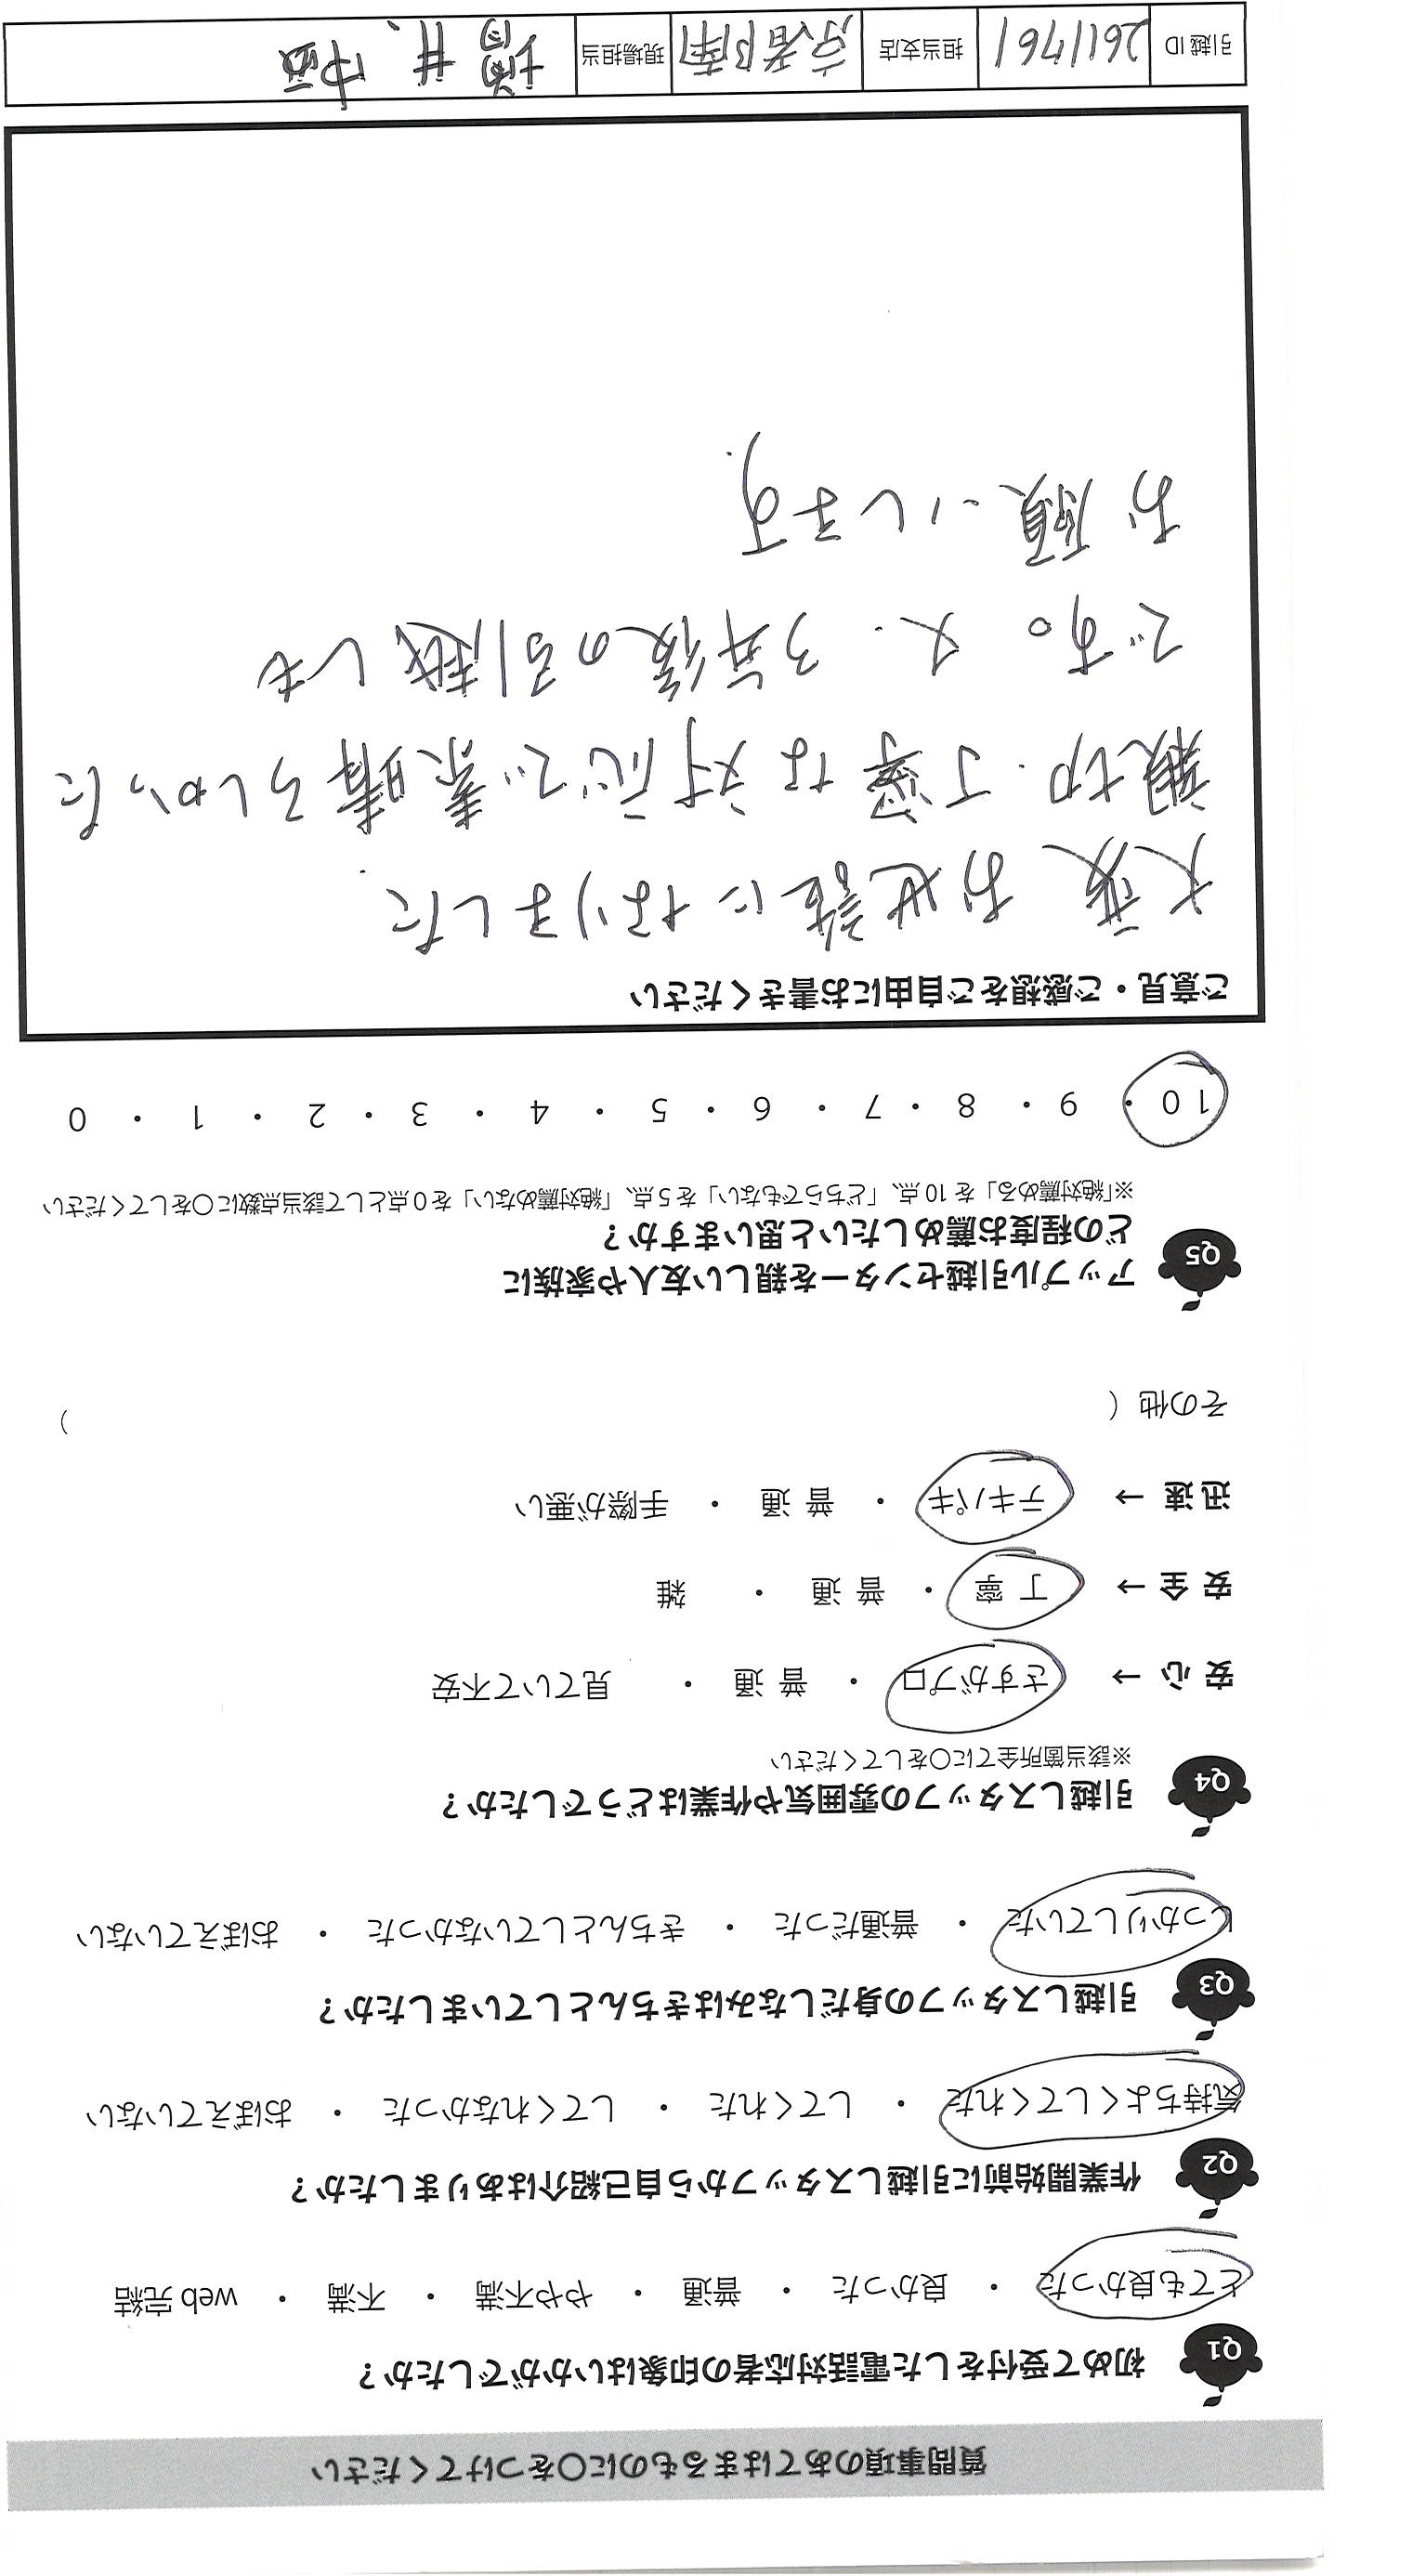 質問事項のあてはまるものに〇をつけてください
Q1 初めて受付をした電話対応者の印象はいかがでしたか？
とても良かった ・ 良かった ・ 普通 ・ やや不満 ・ 不満 ・ web 完結
Q2 作業開始前に引越しスタッフから自己紹介はありましたか？
気持ちよくしてくれた ・ してくれた ・ してくれなかった ・ おぼえていない
Q3 引越しスタッフの身だしなみはきちんとしていましたか？
しっかりしていた ・ 普通だった ・ きちんとしていなかった ・ おぼえていない
Q4 引越しスタッフの雰囲気や作業はどうでしたか？
※該当箇所全てに〇をしてください
安 心 → さすがプロ ・ 普 通 ・ 見ていて不安
安 全 → 丁 寧 ・ 普 通 ・ 雑
迅 速 → テキパキ ・ 普 通 ・ 手際が悪い
その他（ ）
Q5 アップル引越センターを親しい友人や家族に
どの程度お薦めしたいと思いますか？
※「絶対薦める」を 10 点、「どちらでもない」を 5 点、「絶対薦めない」を 0 点として該当点数に〇をしてください
10 ・ 9 ・ 8 ・ 7 ・ 6 ・ 5 ・ 4 ・ 3 ・ 2 ・ 1 ・ 0
ご意見・ご感想をご自由にお書きください
大変 お世話になりました.
親切.丁寧な対応で素晴らしかった
です。又.3年後の引越しも
お願いします.
引越 ID 2611761 担当支店 京都南 現場担当 増井、中西